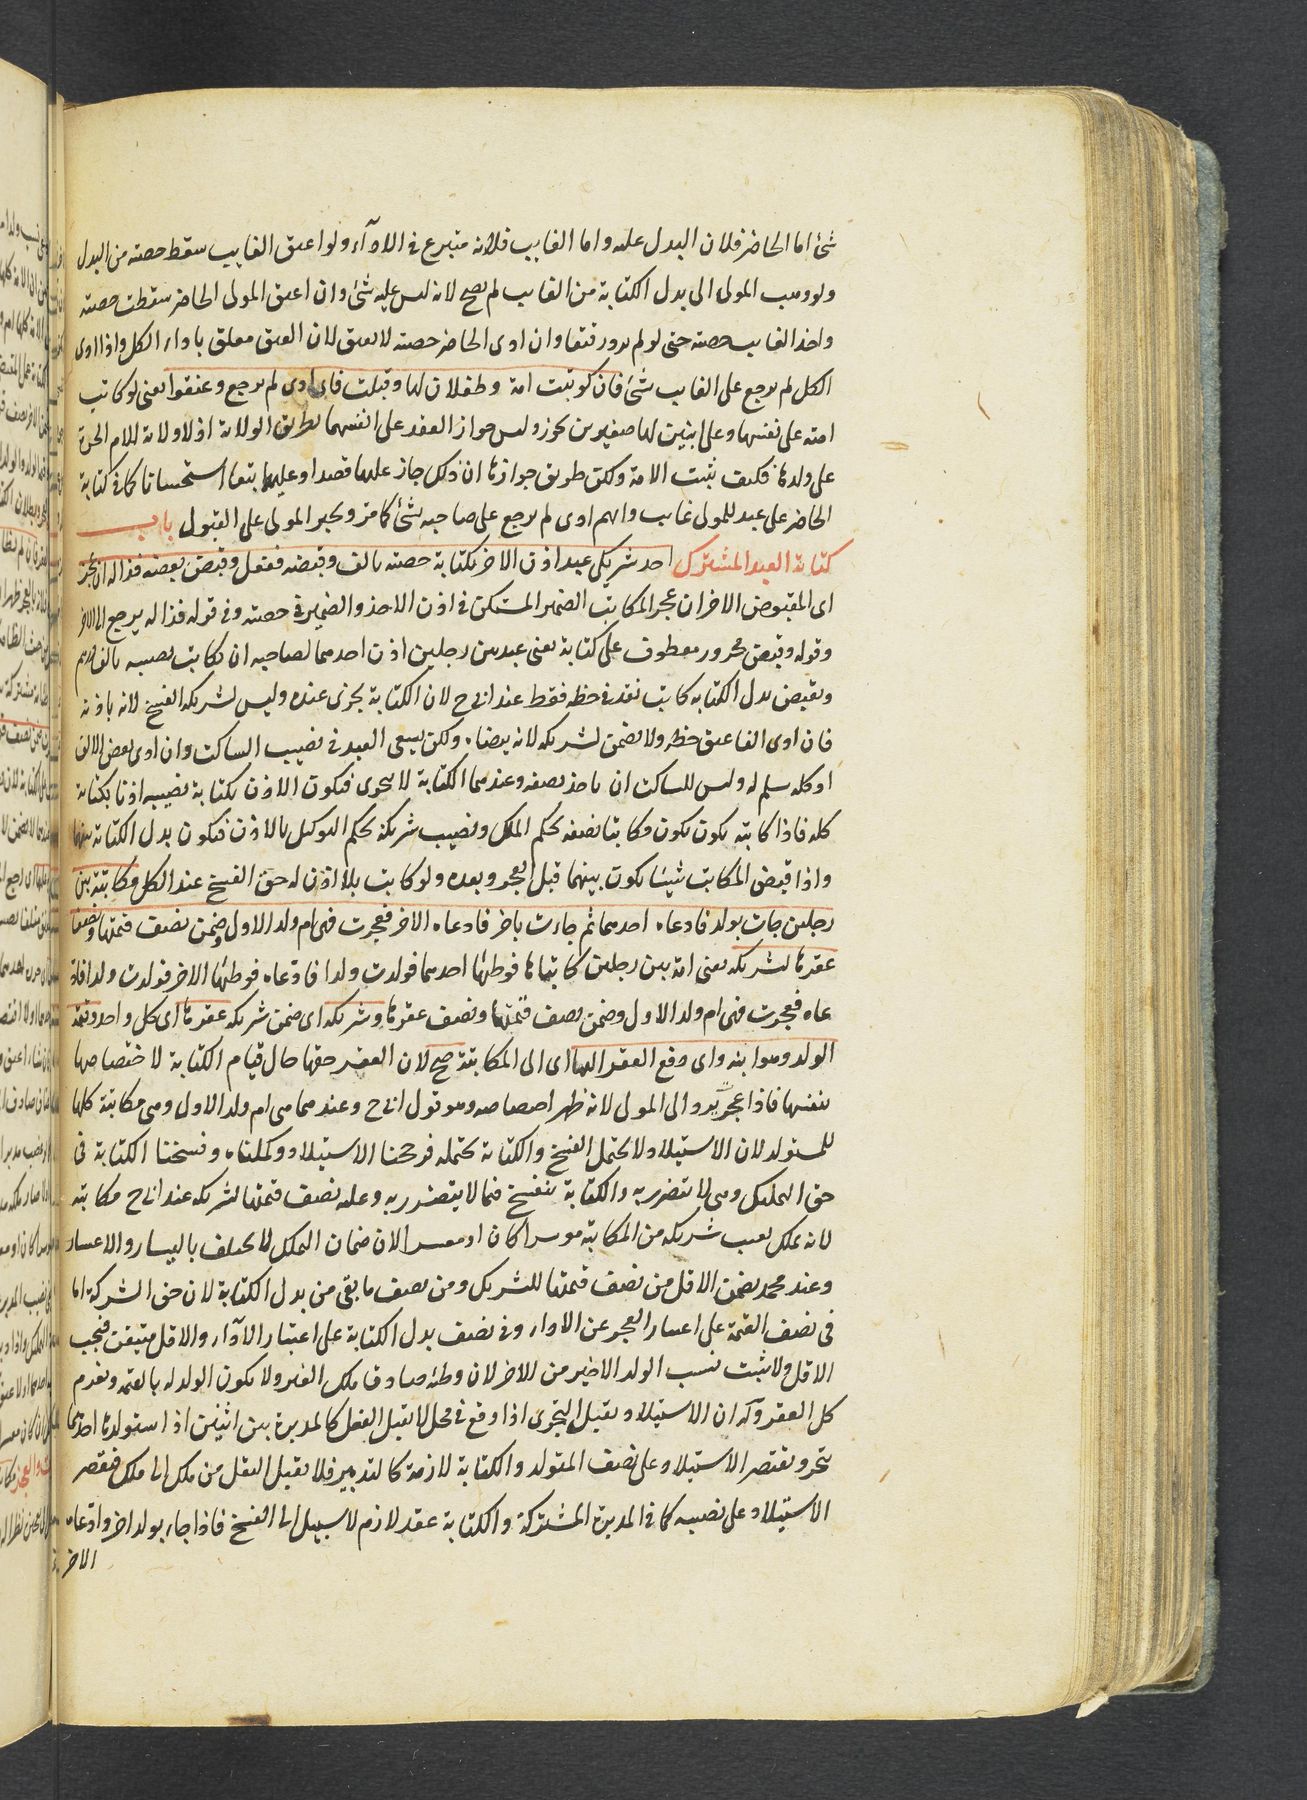 شئ اما الحاضر فلان البدل عليه واما الغايب فلانه متبرع فى الادآء ولو اعتق الغايب سقط حصته من البدل
ولو وهب المولى الى بدل الكتابة من الغايب لم يصح لانه ليس عليه شئ وان اعتق المولى الحاضر سقطت حصته
واخذ الغايب حصته حتى لو لم يرد رقيقا وان ادى الحاضر حصته لا يعتق لان العتق معلق باداء الكل واذا ادى
الكل لم يرجع على الغايب شئ فان كوتبت امة وطفلان لها وقبلت فاى ادى لم يرجع وعتقوا يعنى لو كاتب
امته على نفسها وعلى ابنين لها صغيرين يجوز وليس جواز العقد على انفسهما بطريق الولاية اذ لا ولاية للام الحرة
على ولدها فكيف تثبت الامة ولكن طريق جوازها ان ذلك جاز عليها قصدا وعليهما تبعا استحسانا كما فى كتابة
الحاضر على عبد للمولى غايب وايهم ادى لم يرجع على صاحبه بشئ كما مر ويجبر المولى على القبول باب
كتابة العبد المشترك احد شريكى عبد اذن الاخر بكتابة حصته بالف وقبضه ففعل وقبض بعضه فذا له ان عجز
اى المقبوض الاخر ان عجز المكاتب الضمير المستكن فى اذن لاحد والضمير فى حصته وفى قوله فذا له يرجع الى الاخر
وقوله وقبض مجرور معطوف على كتابة يعنى عبد بين رجلين اذن احدهما لصاحبه ان يكاتب نصيبه بالف درهم
ويقبض بدل الكتابة كاتب نفذ فى حظه فقط عند ابى ح لان الكتابة يجزى عنده وليس لشريكه الفسخ لانه باذنه
فان ادى الفا عتق حظه ولا يضمن لشريكه لانه برضاه ولكن يسعى العبد فى نصيب الساكت وان ادى بعض الالف
او كله سلم له وليس للساكت ان ياخذ نصفه وعندهما الكتابة لا تتجزى فيكون الاذن بكتابة نصيبه اذنا بكتابة
كله فاذا كاتبه يكون يكون مكاتبا نصفه بحكم الملك ونصيب شريكه بحكم التوكيل بالاذن فيكون بدل الكتابة بينهما
واذا قبض المكاتب شيئا يكون بينهما قبل العجز وبعده ولو كاتب بلا اذن له حق الفسخ عند الكل مكاتبة بين
رجلين جات بولد فادعاه احدهما ثم جاءت باخر فادعاه الاخر فعجزت فهى ام ولد الاول وضمن نصف قيمتها ونصف
عقرها لشريكه يعنى امة بين رجلين كاتباها فوطئها احدهما فولدت ولدا فادعاه فوطئها الاخر فولدت ولدا فاد
عاه فعجزت فهى ام ولد الاول وضمن نصف قيمتها ونصف عقرها وشريكه اى ضمن شريكه عقرها اى كل واحد وقيمة
الولد وهو ابنه واى دفع العقر اليها اى الى المكاتبة صح لان العقر حقها حال قيام الكتابة لاختصاصها
بنفسها فاذا عجزت يرد الى المولى لانه ظهر اختصاصه وهو قول ابى ح وعندهما هى ام ولد الاول وهى مكاتبة كلها
للمستولد لان الاستيلاد لا يحتمل الفسخ والكتابة تحتمله فرجحنا الاستيلاد وكملناه وفسخنا الكتابة فى
حق التملك وهى لا تتضرر به والكتابة تنفسخ فيما لا يتضرر به وعليه نصف قيمتها لشريكه عند ابى ح مكاتبة
لانه تملك نصيب شريكه من المكاتبة موسرا كان او معسرا لان ضمان التملك لا يختلف باليسار والاعسار
وعند محمد يضمن الاقل من نصف قيمتها للشريك ومن نصف ما بقى من بدل الكتابة لان حق الشركة اما
فى نصف القيمة على اعتبار العجز عن الاداء وفى نصف بدل الكتابة على اعتبار الآداء والاقل متيقن فيجب
الاقل ولا يثبت نسب الولد الاخير من الاخر لان وطئه صادف ملك الغير ولا يكون الولد له بالقيمة ويغرم
كل العقر وله ان الاستيلاد يقبل التجزى اذا وقع فى محل لا يقبل النقل كالمدبرة بين اثنين اذا استولدها احدهما
يتجزى ويقتصر الاستيلاد على نصف المستولد والكتابة لازمة كالتدبير فلا يقبل النقل من ملك الى ملك فيقتصر
الاستيلاد على نصيبه كما فى المدبرة المشتركة والكتابة عقد لازم لا سبيل الى الفسخ فاذا جاء بولد اخر وادعاه
الاخر